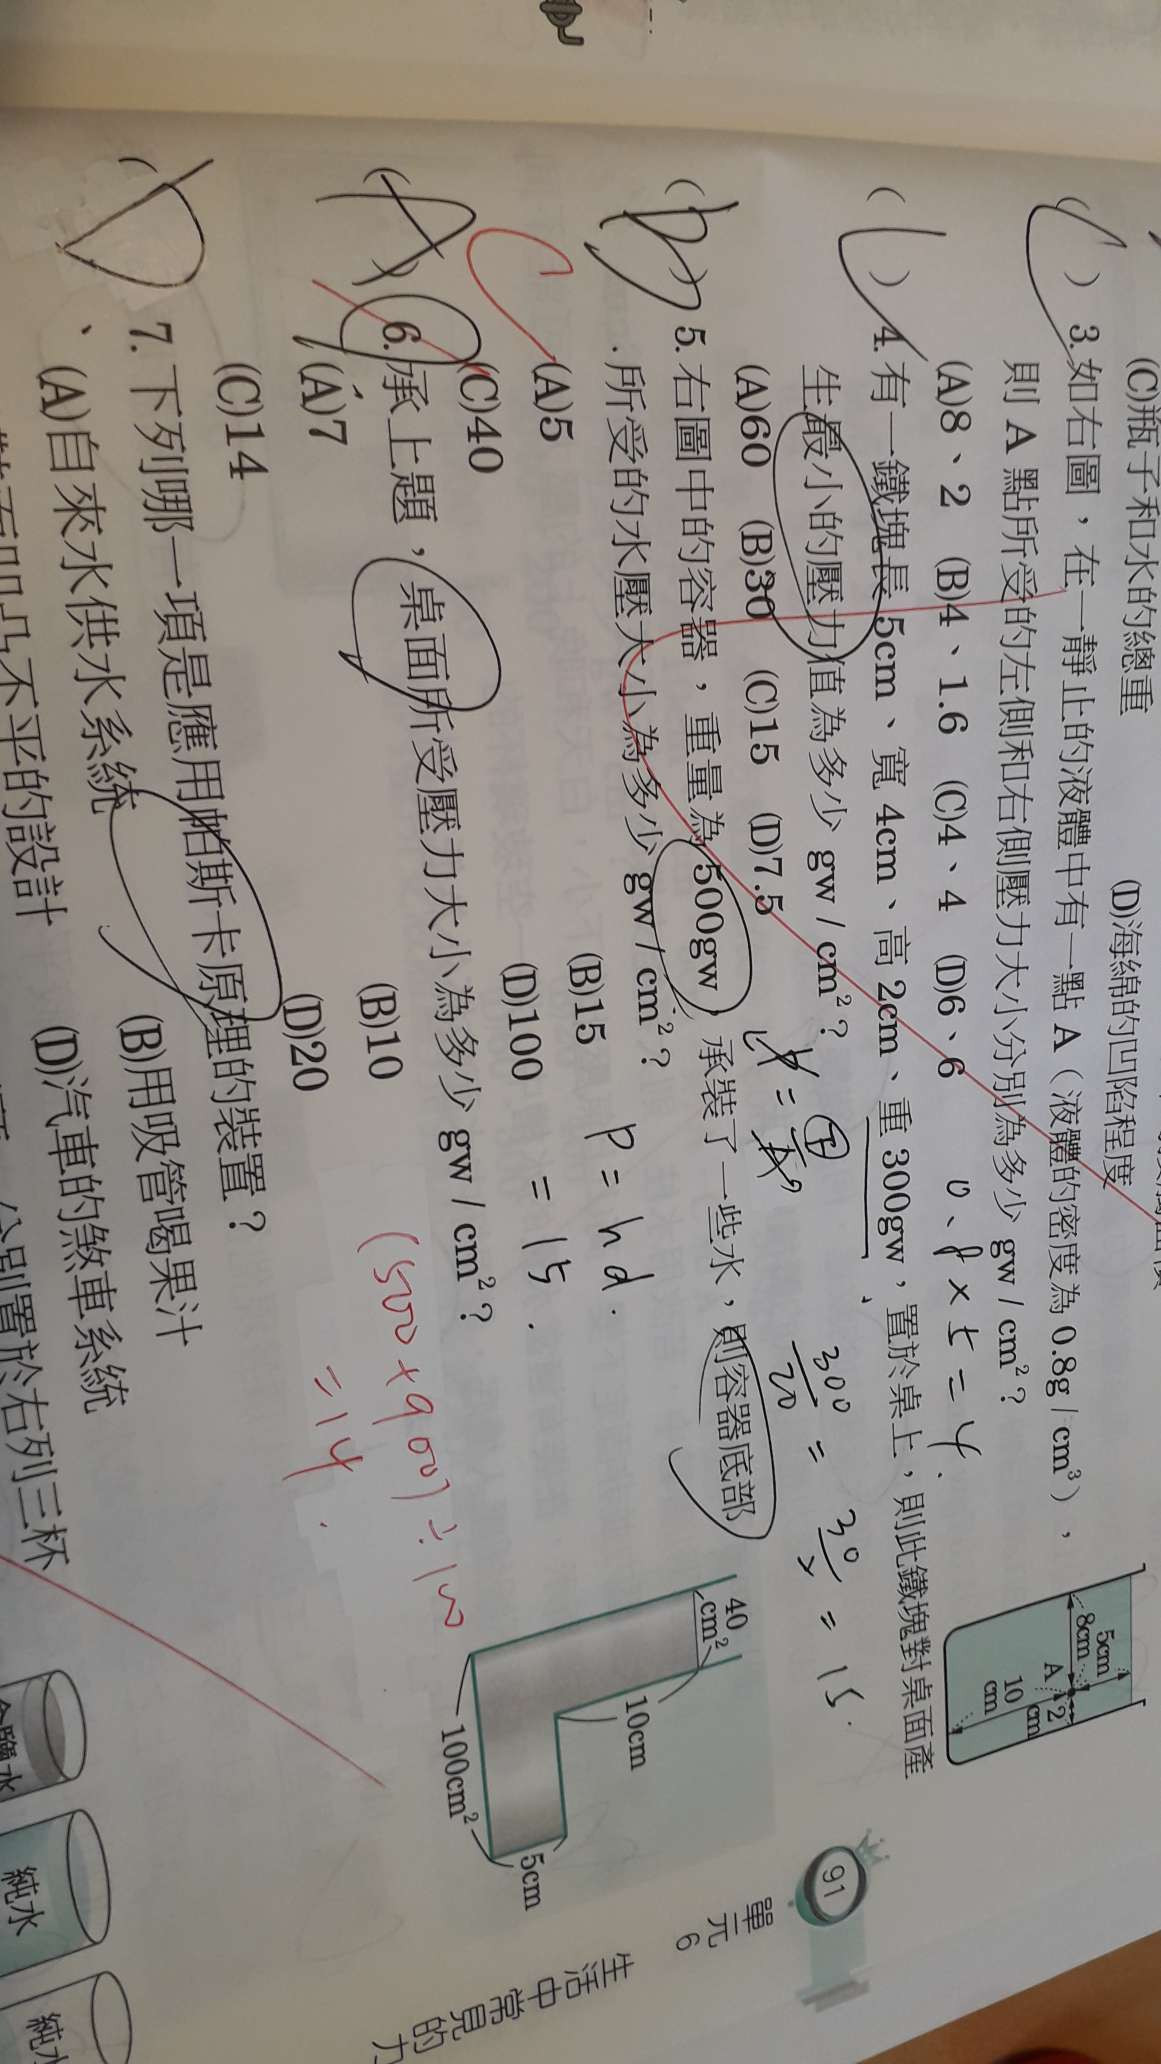 (C)瓶子和水的總重
(D)海綿的凹陷程度
(C) 3. 如右圖，在一靜止的液體中有一點 A（液體的密度為 0.8g / cm³），
則 A 點所受的左側和右側壓力大小分別為多少 gw / cm²？
(A)8、2 (B)4、1.6 (C)4、4 (D)6、6
0.8×5=4.
5cm
8cm
A
2
cm
10
cm
( ) 4. 有一鐵塊長 5cm、寬 4cm、高 2cm、重 300gw，置於桌上，則此鐵塊對桌面產
生最小的壓力值為多少 gw / cm²？
(A)60 (B)30 (C)15 (D)7.5
300/20 = 30/2 = 15.
5. 右圖中的容器，重量為 500gw，承裝了一些水，則容器底部
所受的水壓大小為多少 gw / cm²？
(A)5
(B)15
(C)40
(D)100
P = hd.
= 15.
40
cm²
10cm
100cm²
5cm
(A) 6. 承上題，桌面所受壓力大小為多少 gw / cm²？
C
(A)7
(B)10
(C)14
(D)20
(500+900)÷100
=14.
(D) 7. 下列哪一項是應用帕斯卡原理的裝置？
(A)自來水供水系統
(B)用吸管喝果汁
(D)汽車的煞車系統
凹凸不平的設計
分別置於右列三杯
純水
91
單元6
生活中常見的力